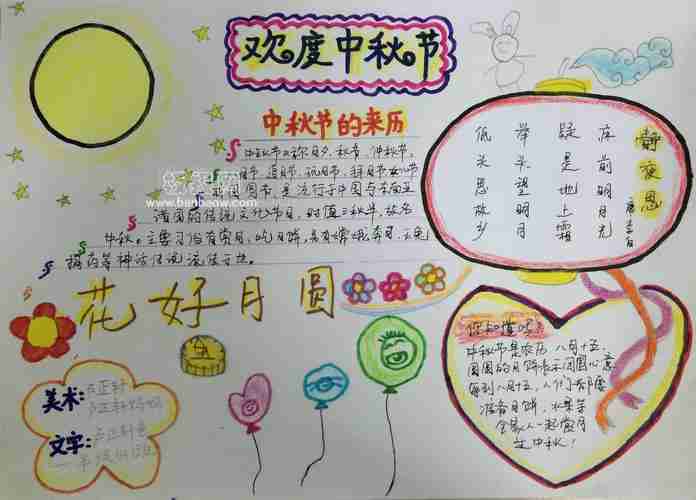 欢度中秋节
中秋节的来历
中秋节又称月夕、秋节、仲秋节、
节、追月节、玩月节、拜月节、女儿节
团圆节，是流行于中国与
诸国的传统文化节日，时值三秋半，故名
中秋。主要习俗有赏月、吃月饼，另有嫦娥奔月、玉兔
捣药等神话传说流传于世。
www.banbaow.com
静夜思
唐 李白
床前明月光
疑是地上霜
举头望明月
低头思故乡
花好月圆
你知道吗？
中秋节是农历八月十五，
圆圆的月饼表示团圆心意
每到八月十五，人们都要
准备月饼、水果等
全家人一起赏月
过中秋！
美术：
文字：